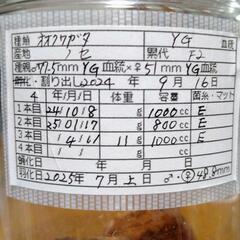 種類 オオクワガタ YG 血統
産地 ノセ 累代 F2
種親♂77.5mm YG血統×♀51mm YG血統
割り出し2024年 9月16日
4年/月/日 体重 容量 菌糸・マット
1本目 24/10/8 g 1000cc E
2本目 25/01/17 g 800cc E
3本目 1/4/61 11g 1000cc E
4本目 / / g cc
蛹化日 年 月 日
羽化日 2025年 7月上日 ♂・♀48.8mm